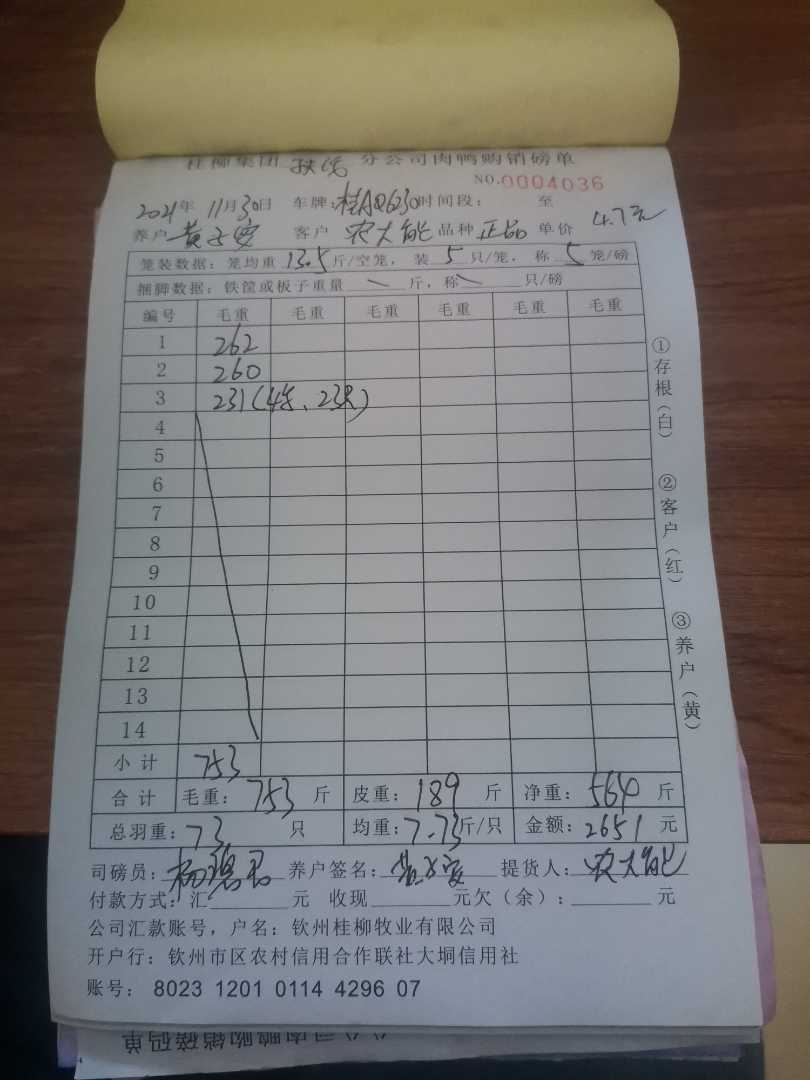 桂柳集团 扶绥 分公司肉鸭购销磅单
NO.0004036
2021年 11月30日 车牌：桂AQ6230 时间段： 至
养户 黄子安 客户 农大能 品种 正品 单价 4.7元
笼装数据：笼均重 13.5 斤/空笼，装 5 只/笼，称 5 笼/磅
捆脚数据：铁筐或板子重量 \ 斤，称 \ 只/磅
编号 毛重 毛重 毛重 毛重 毛重 毛重
1 262
2 260
3 231(4笼、23只)
4
5
6
7
8
9
10
11
12
13
14
小计 753
合计 毛重：753 斤 皮重：189 斤 净重：564 斤
总羽重：73 只 均重：7.73斤/只 金额：2651 元
司磅员： 养户签名：黄子安 提货人：农大能
付款方式：汇 元 收现 元欠（余）： 元
公司汇款账号，户名：钦州桂柳牧业有限公司
开户行：钦州市区农村信用合作联社大垌信用社
账号：8023 1201 0114 4296 07
①存根(白) ②客户(红) ③养户(黄)
分公司肉鸭购销磅码单